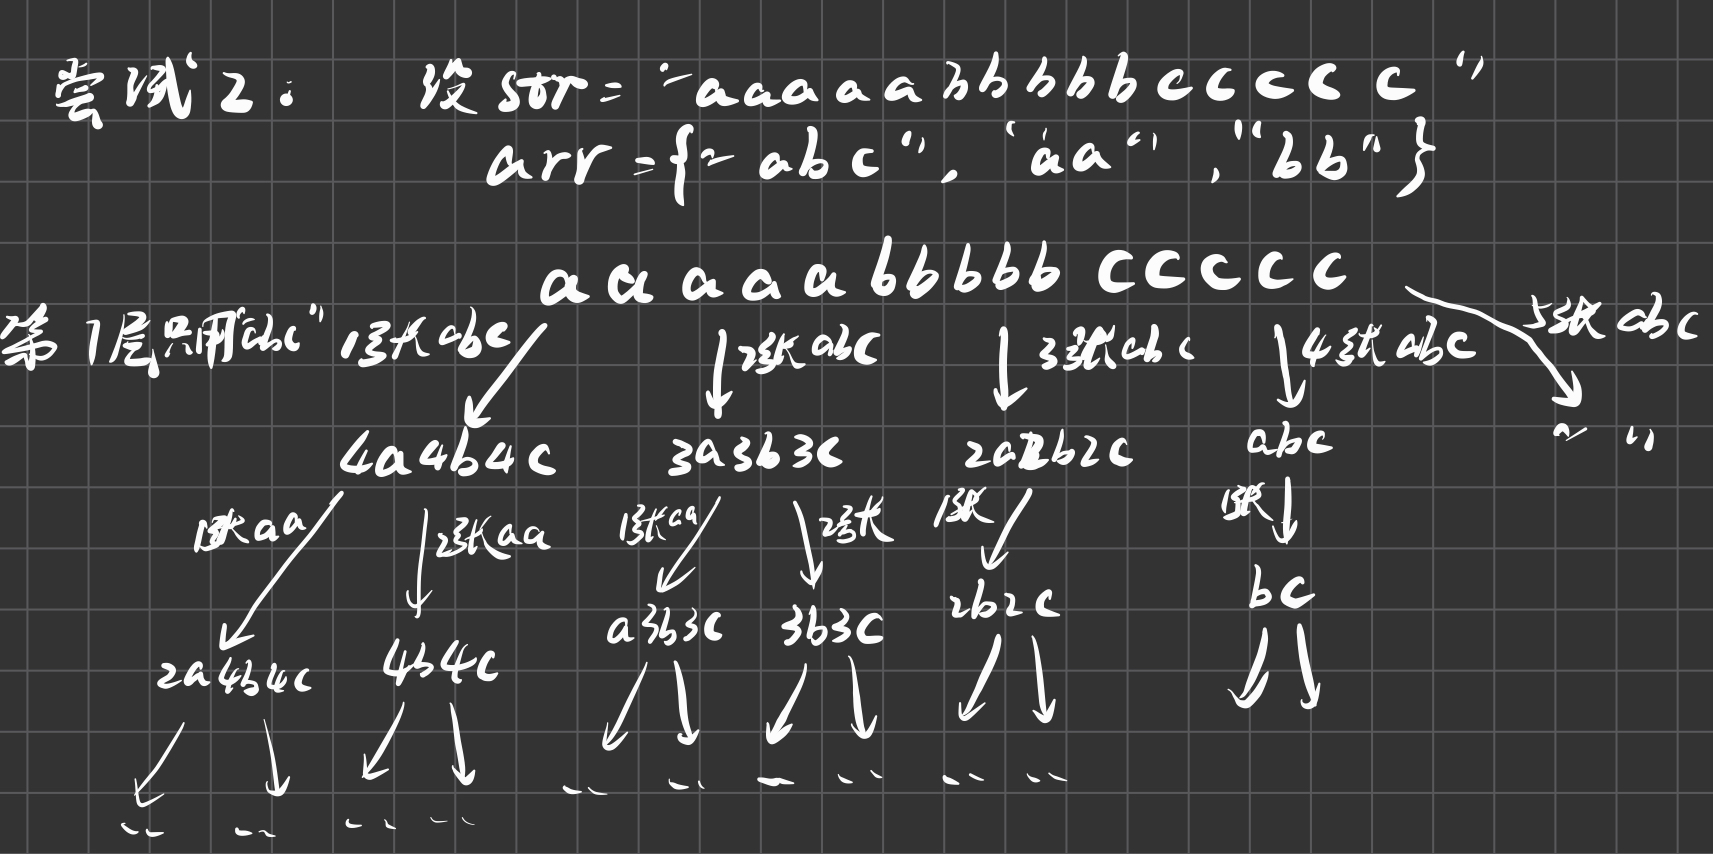 尝试2: 设str="aaaaabbbbbccccc"
arr={"abc", "aa", "bb"}
aaaaabbbbbccccc
第1层只用"abc" 1张abc 2张abc 3张abc 4张abc 5张abc
4a4b4c 3a3b3c 2a2b2c abc ""
1张aa 2张aa 1张aa 2张 1张 1张
2a4b4c 4b4c a3b3c 3b3c 2b2c bc